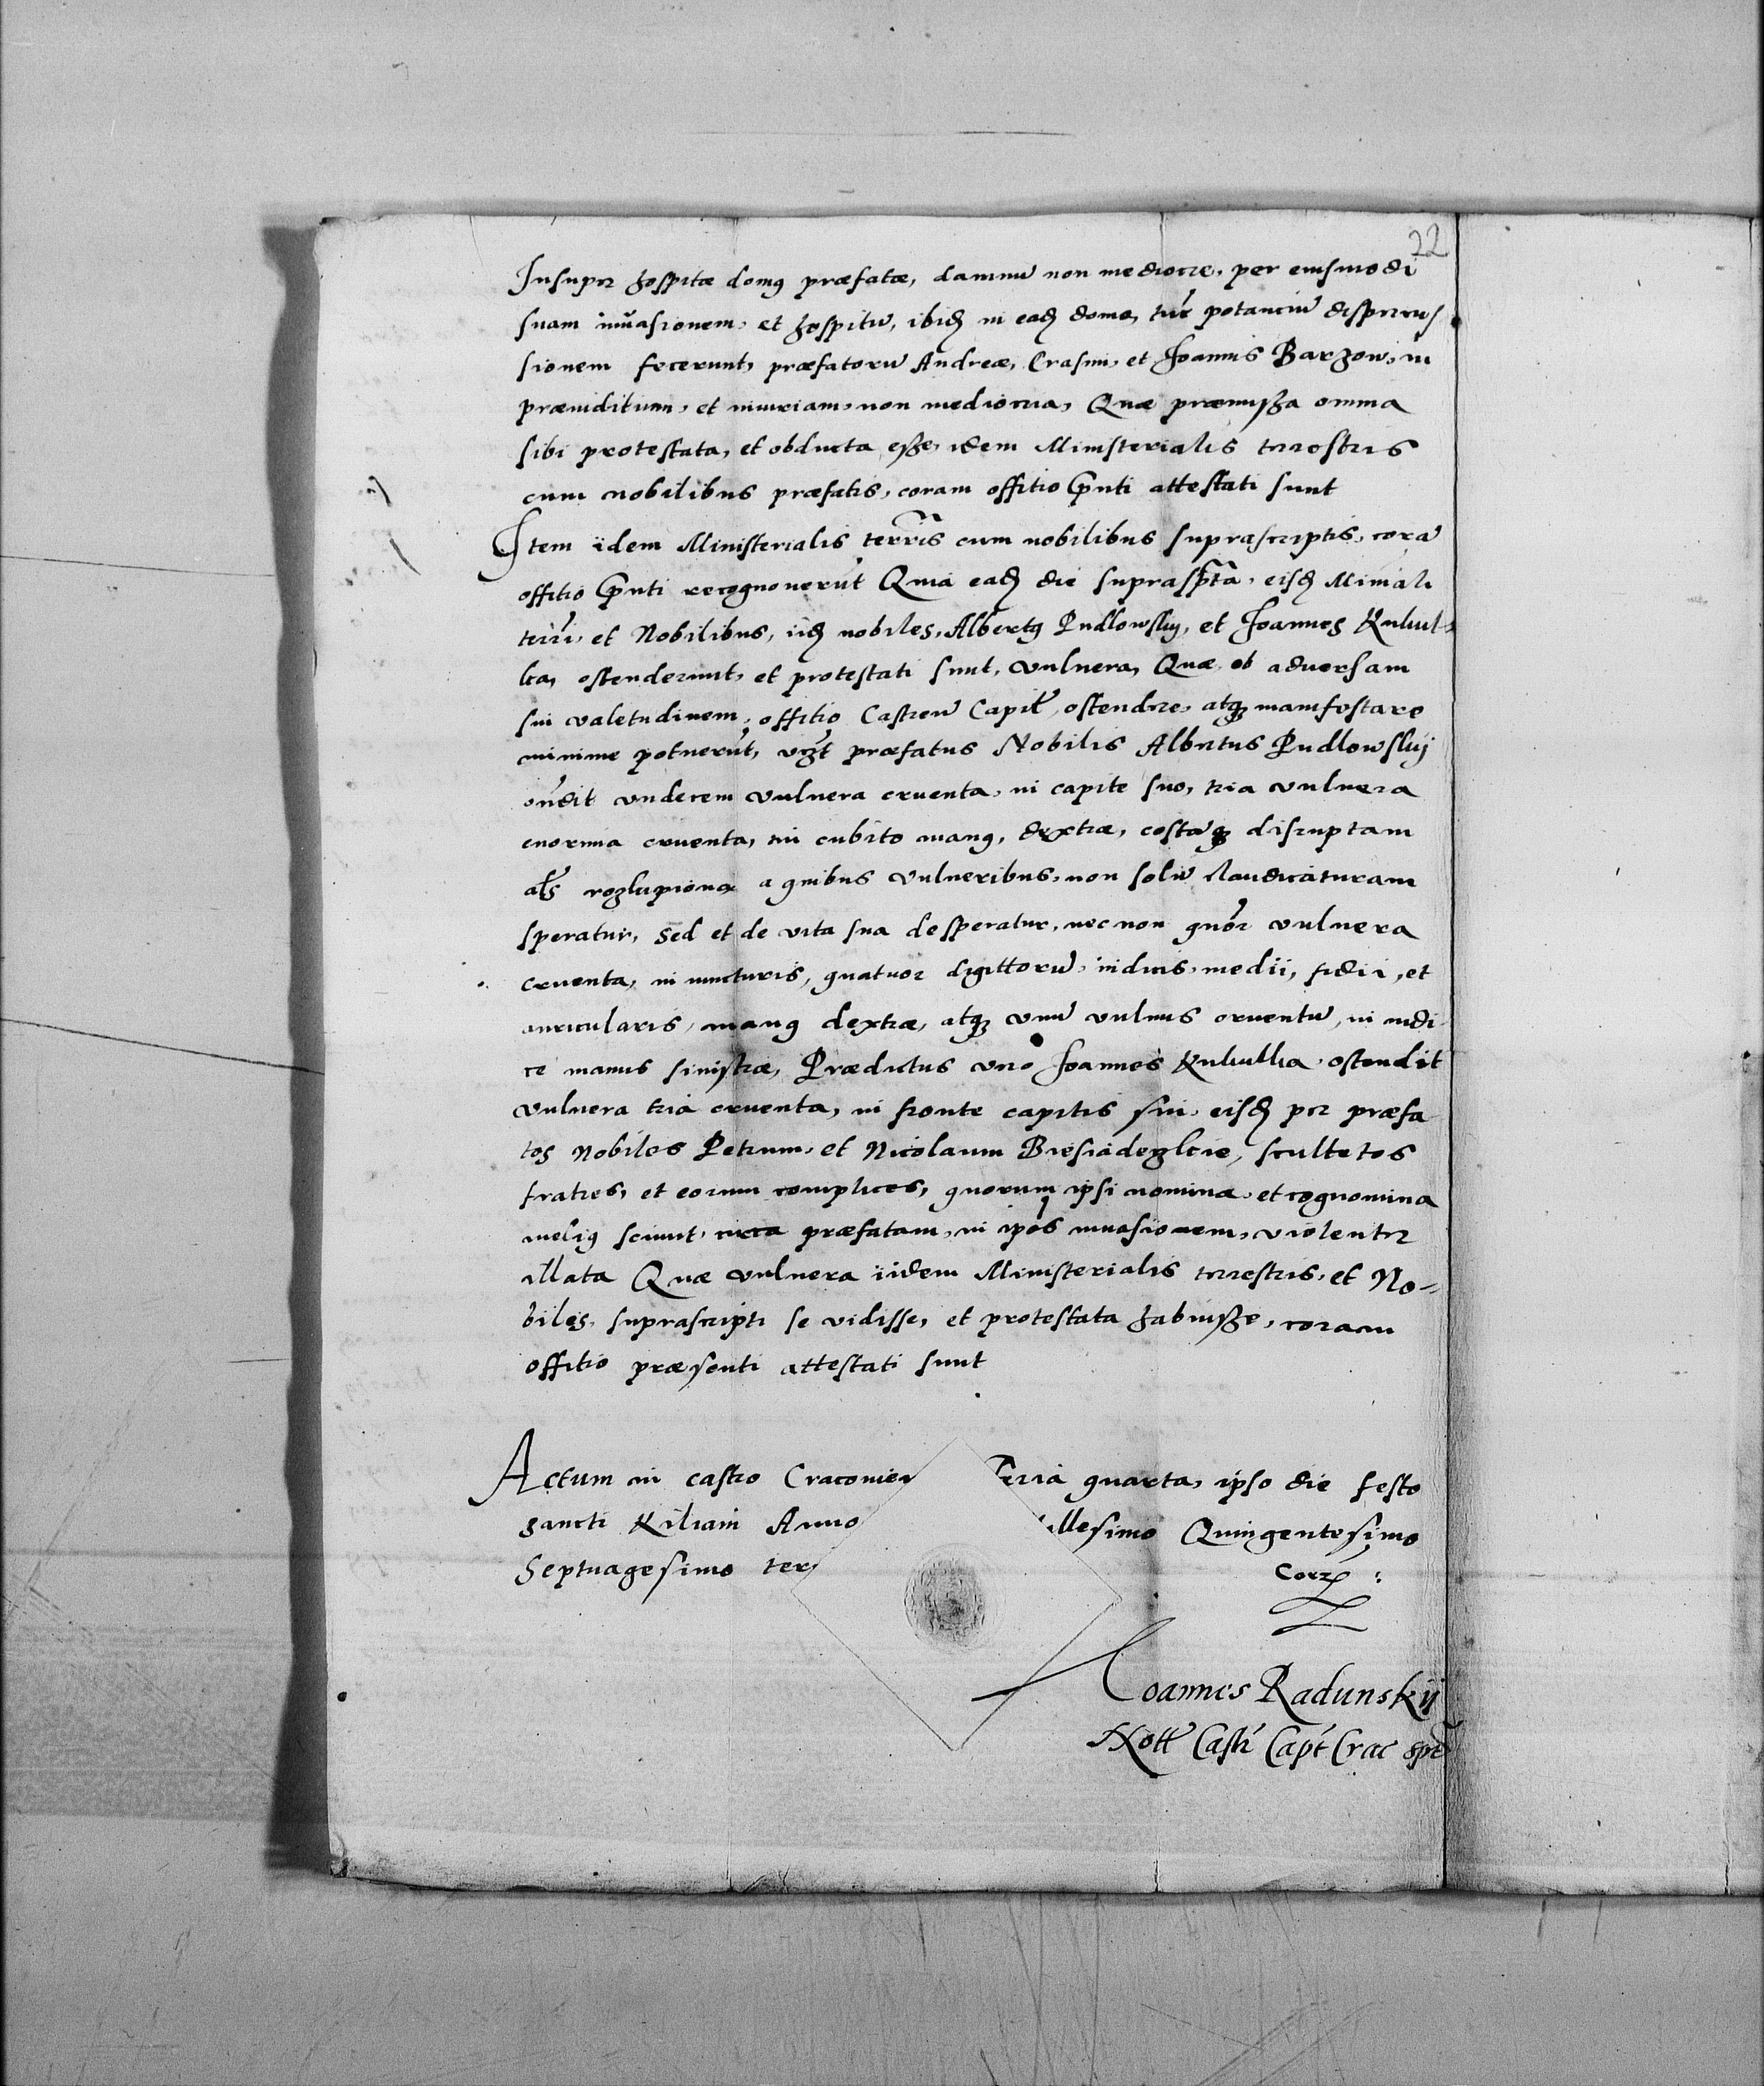 22
Insuper hospitæ domus præfatæ, damnū non mediocre, per eiusmodi
suam invasionem, et hospitū, ibidē in eadē domo, tūc potanciū disperius
sionem fecerunt, præfatorū Andreæ, Erasmi, et Joannis Barzow, in
præiuditium, et iniuriam, non mediocria, Quæ præmissa omnia
sibi protestata, et obducta esse, idem Ministerialis terrestris
cum nobilibus præfatis, coram offitio pnti attestati sunt
Item idem Ministerialis terris cum nobilibus suprascriptis, corā
offitio pnti recognoverūt Quia eadē die suprasptā, eisdē Miniali
terri, et Nobilibus, iidē nobiles, Albertus Pudlowskij, et Joannes Kukul
ka, ostenderunt, et protestati sunt, vulnera, Quæ ob adversam
sui valetudinem, offitio Castren Capit, ostendere, atq manifestare
minime potuerūt, vzt præfatus Nobilis Albertus Pudlowskij
ondit undecem vulnera cruenta, in capite suo, tria vulnera
enormia cruenta, in cubito manus, dextræ, costāq disruptam
als rozlupiona a quibus vulneribus, non solū claudicaturam
speratur, sed et de vita sua desperatur, nec non quor vulnera
cruenta, in iuncturis, quatuor digittorū, indicis, medii, fidii, et
auricularis, manus dextræ, atq unū vulnus cruentū, in indi-
ce manus sinistræ, Prædictus vero Joannes Kukulka ostendit
vulnera tria cruenta, in fronte capitis sui, eisdē per præfa
tos nobiles Petrum, et Nicolaum Biesiadezkie, scultetos
fratres, et eorum complices, quorum ipsi nomina, et cognomina
melius sciunt, circa præfatam, in ipos invasionem, violenter
illata Quæ vulnera iidem Ministerialis terrestris, et No-
biles, suprascripti se vidisse, et protestata habuisse, coram
offitio præsenti attestati sunt
Actum in castro Cracovien Feria quarta, ipso die festo
sancti Kiliani Anno illesimo Quingentesimo
Septuagesimo ter
Corz :
Joannes Radunskij
Nott Castr Capt Crac spt